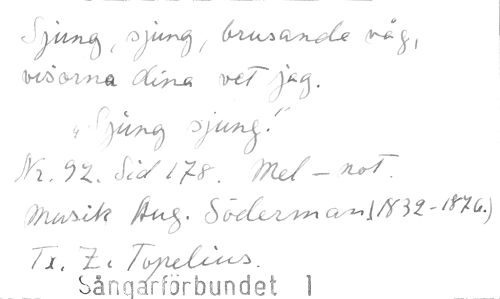 Sjung, sjung, brusande våg,
visorna dina vet jag.
"Sjung sjung!"
Nr. 92. Sid 178. Mel-not.
Musik Aug. Söderman (1832-1876.)
Tx. Z. Topelius.
Sångarförbundet 1